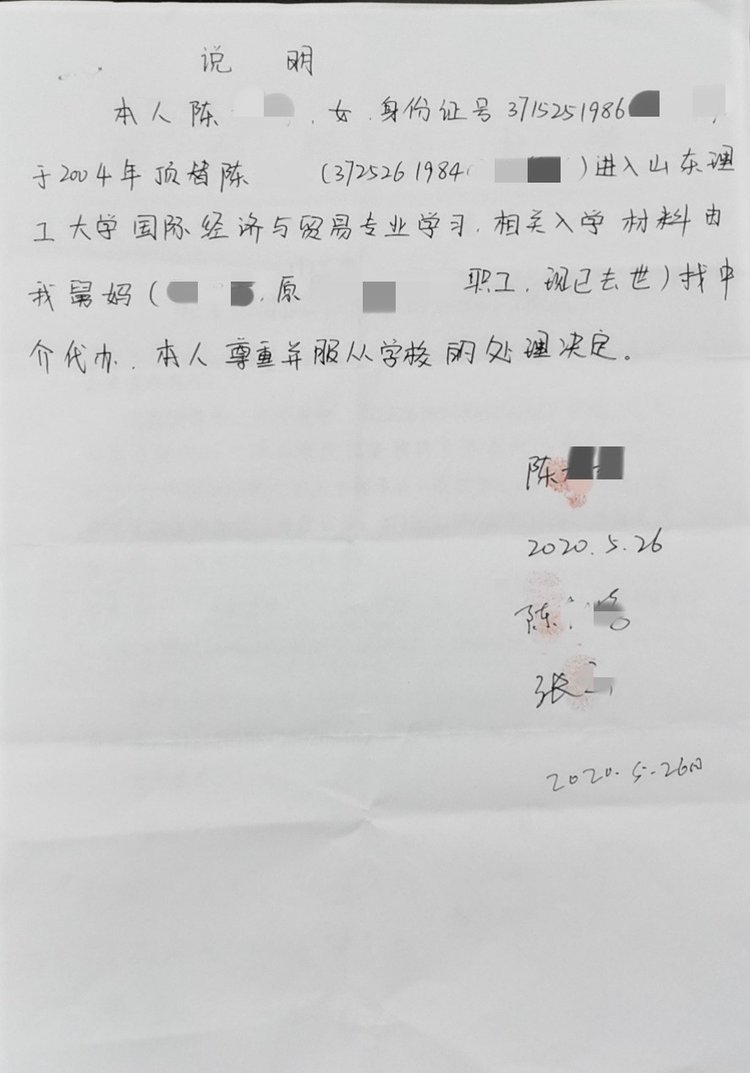 说 明
本人陈 , 女, 身份证号3715251986 ,
于2004年顶替陈 (3725261984 )进入山东理
工大学国际经济与贸易专业学习, 相关入学材料由
我舅妈( , 原 职工, 现已去世)找中
介代办, 本人尊重并服从学校的处理决定。
陈
2020.5.26
陈
张
2020.5.26日